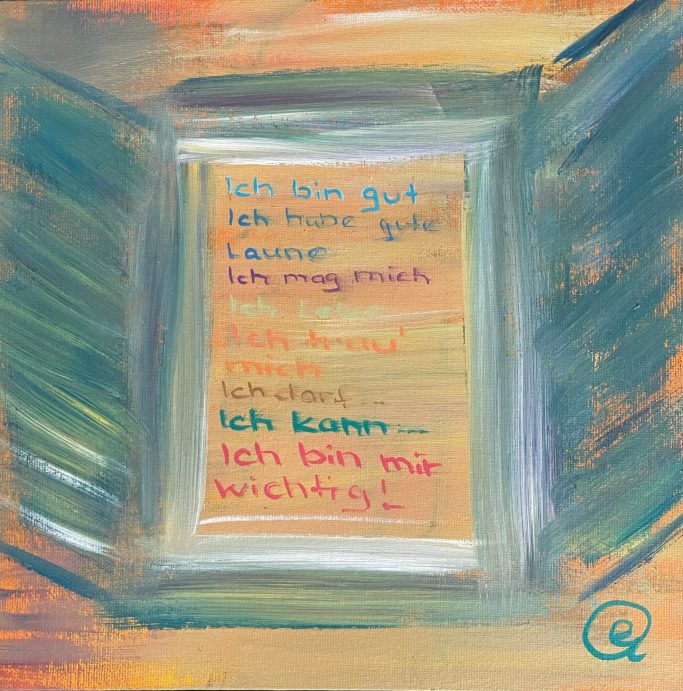 Ich bin gut
Ich habe gute
Laune
Ich mag mich
Ich lebe
Ich trau'
mich
Ich darf...
Ich kann...
Ich bin mir
wichtig!